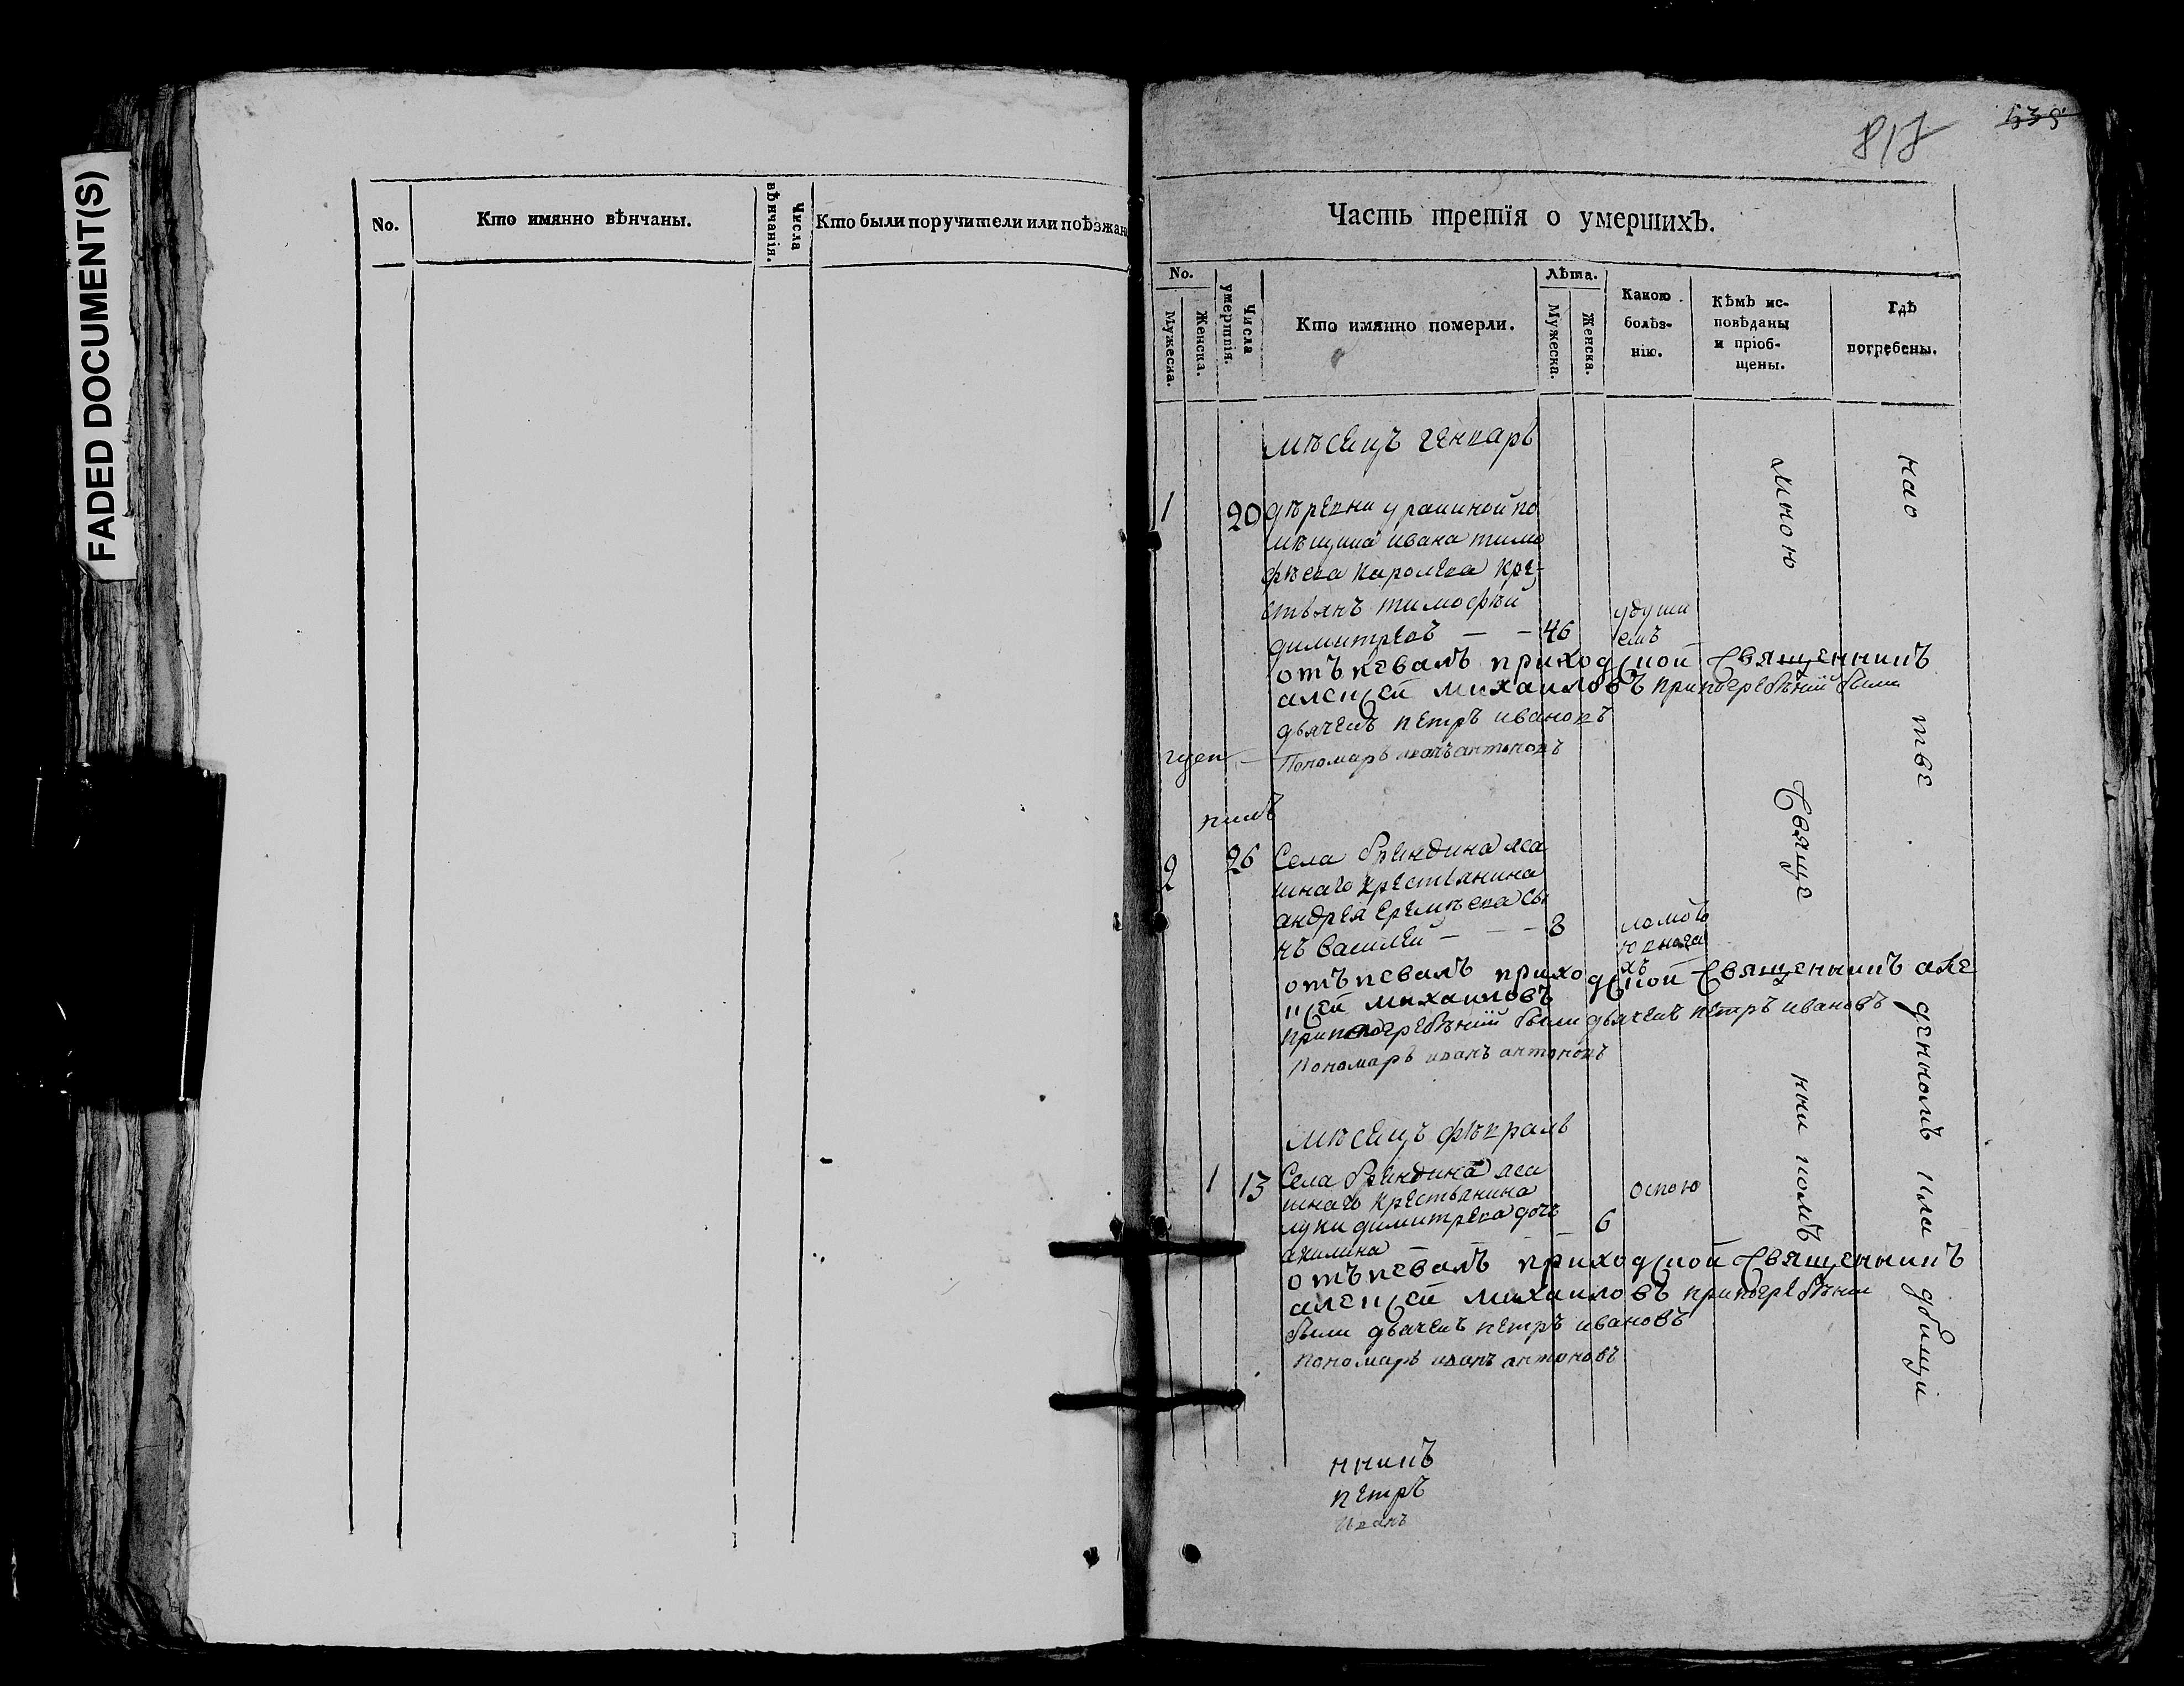 FADED DOCUMENT(S)
No.
Кто имянно вѣнчаны.
Числа вѣнчанія.
Кто были поручители или поѣзжан
817
535
Часть третія о умершихъ.
No.
Мужеска.
Женска.
Числа умертвія.
Кто имянно померли.
Лѣта.
Мужеска.
Женска.
Какою болѣз-
нію.
Кѣмъ ис-
повѣданы
и пріоб-
щены.
Гдѣ
погребены.
мѣсецъ генварь
1 20 дѣревни урашиной по
мѣщика ивана тимо
фѣева каролева кре-
стьянъ тимофѣй
димитревъ — — 46 удуши
емъ
отъпевалъ приходской священникъ
алексей михаиловъ припогребѣнiи были
дьячекъ петръ ивановъ
Пономарь иванъ антоновъ
2 26 Села бриндина яса
шнаго крестьянина
андрея еремѣева сы
нъ василей — — — 3 ломото
ю вногa
хъ
отъпевалъ приходской священникъ але
ксей михаиловъ
припогребѣнiи были дьячекъ петръ ивановъ
пономарь иванъ антоновъ
мѣсецъ фѣвраль
1 13 Села бриндина яса
шнаго крестьянина
луки димитрева дочь
акилина — — 6 оспою
отъпевалъ приходской священникъ
алексей михаиловъ припогребѣнiи
были дьячекъ петръ ивановъ
пономарь иванъ антоновъ
мною
священнымъ
никомъ
на о
тве
денномъ кла
дбищи
нникъ
петръ
иванъ